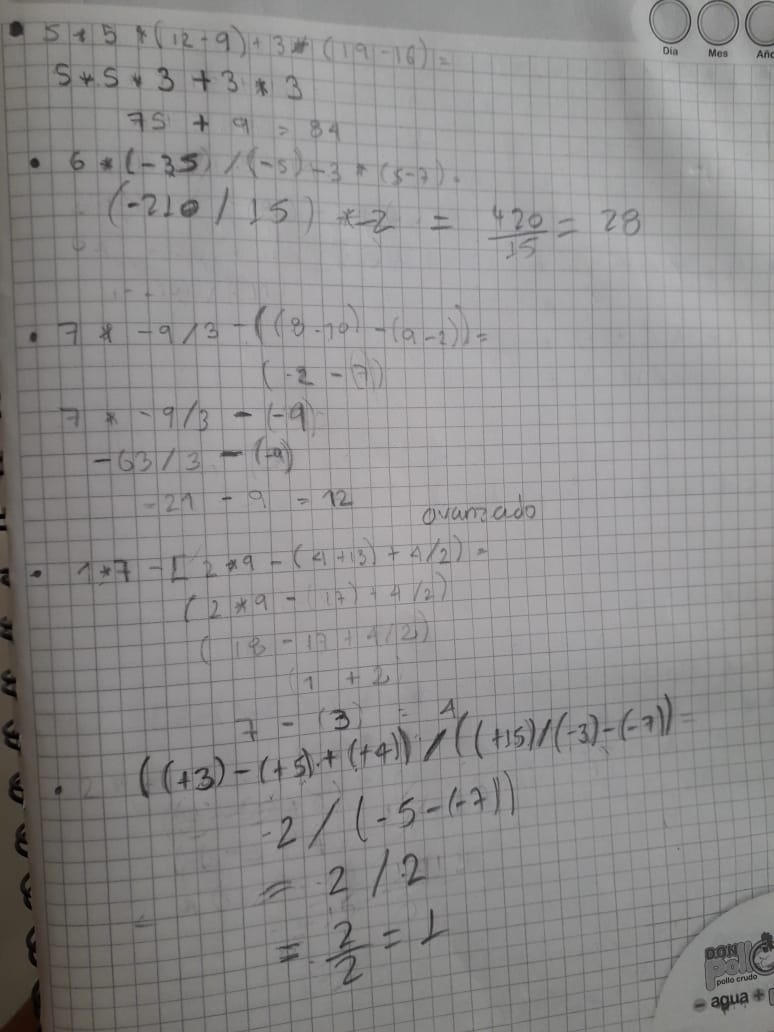 Dia Mes Año
• 5 * 5 * (12 - 9) + 3 * (19 - 16) =
5 * 5 * 3 + 3 * 3
75 + 9 = 84
• 6 * (-35) / (-5) - 3 * (5-7) .
(-210 / 15) * -2 = 420/15 = 28
• 7 * -9/3 - ((8-10) - (9-2)) =
(-2 - (7))
7 * -9/3 - (-9)
-63/3 - (-9)
-21 - 9 = 12
avanzado
• 1*7 - [ 2*9 - (4+13) + 4/2) =
(2*9 - (17) + 4/2)
(18 - 17 + 4/2)
(1 + 2)
7 - (3) = 4
• ((+3) - (+5) + (+4)) / ((+15)/(-3) - (-7)) =
-2 / (-5-(-7))
= 2 / 2
= 2/2 = 1
DON
Pollo
pollo crudo
- agua +